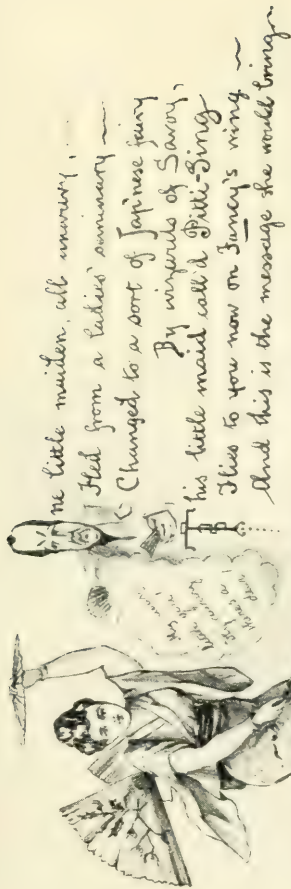 One little maiden, all unwary,
Fled from a ladies' seminary —
Changed to a sort of Jap'nese fairy
By wizards of Savoy,
This little maid call'd Pitti-Sing
Flies to you now on Fancy's wing —
And this is the message she would bring